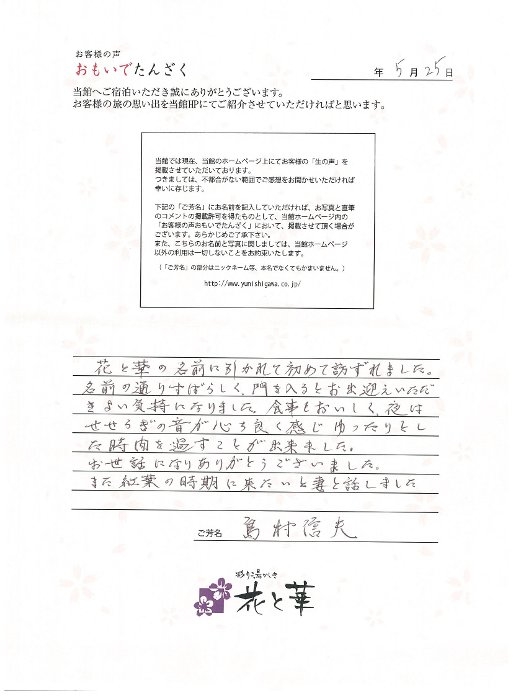 お客様の声
おもいでたんざく
年 5月25日
当館へご宿泊いただき誠にありがとうございます。
お客様の旅の思い出を当館HPにてご紹介させていただければと思います。
当館では現在、当館のホームページ上にてお客様の「生の声」を
掲載させていただいております。
つきましては、不都合がない範囲でご感想をお聞かせいただければ
幸いに存じます。
下記の「ご芳名」にお名前を記入していただければ、お写真と直筆
のコメントの掲載許可を得たものとして、当館ホームページ内の
「お客様の声おもいでたんざく」において、掲載させて頂く場合が
ございます。あらかじめご了承下さい。
また、こちらのお名前と写真に関しましては、当館ホームページ
以外の利用は一切しないことをお約束いたします。
(「ご芳名」の部分はニックネーム等、本名でなくてもかまいません。)
http://www.yunishigawa.co.jp/
花と華の名前に引かれて初めて訪ずれました。
名前の通りすばらしく、門を入るとお出迎えいただ
きよい気持になりました。食事もおいしく、夜は
せせらぎの音が心ち良く感じゆったりとし
た時間を過すことが出来ました。
お世話になりありがとうございました。
また紅葉の時期に来たいと妻と話しました
ご芳名 島村信夫
花と華